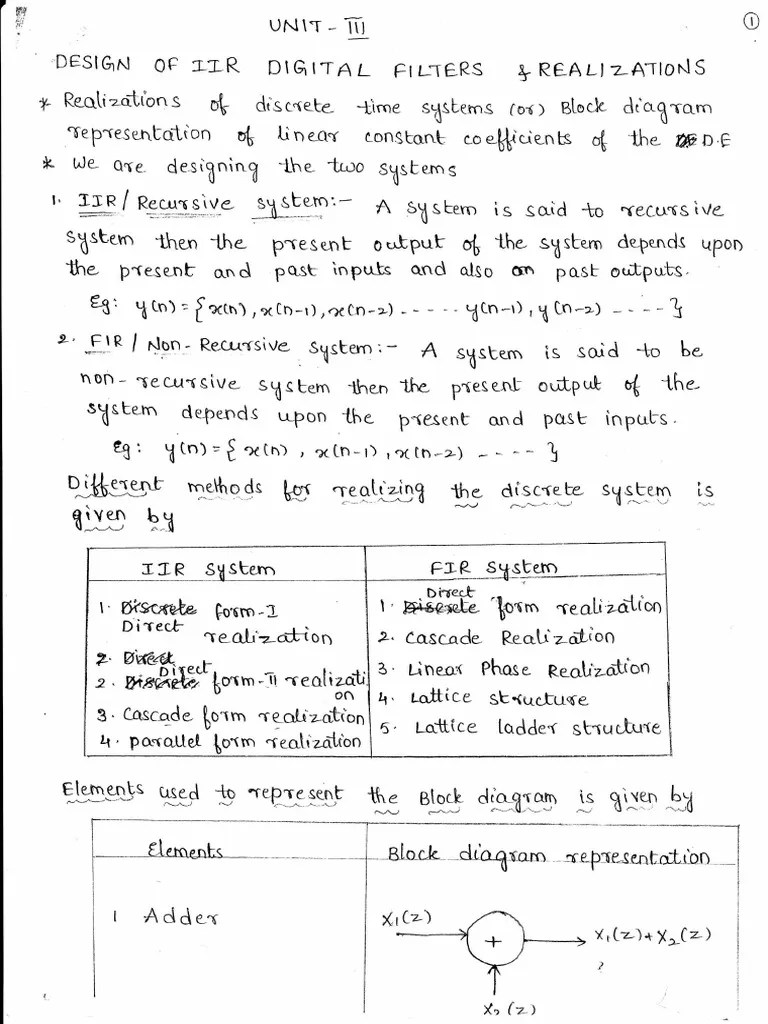 UNIT - III
1
DESIGN OF IIR DIGITAL FILTERS & REALIZATIONS
* Realizations of discrete time systems (or) Block diagram
representation of linear constant coefficients of the D.E
* We are designing the two systems
1. IIR / Recursive system:- A system is said to recursive
system then the present output of the system depends upon
the present and past inputs and also on past outputs.
Eg: y(n) = {x(n), x(n-1), x(n-2) ----- y(n-1), y(n-2) ----}
2. FIR / Non-Recursive system:- A system is said to be
non-recursive system then the present output of the
system depends upon the present and past inputs.
Eg: y(n) = {x(n), x(n-1), x(n-2) ----}
Different methods for realizing the discrete system is
given by
IIR system
1. Discrete form-I
Direct realization
2. Direct
Direct
2. Discrete form-II realizati
on
3. Cascade form realization
4. parallel form realization
FIR system
Direct
1. Discrete form realization
2. Cascade Realization
3. Linear Phase Realization
4. Lattice structure
5. Lattice ladder structure
Elements used to represent the Block diagram is given by
Elements
Block diagram representation
1 Adder
X1(z)
+
X1(z)+X2(z)
?
X2(z)